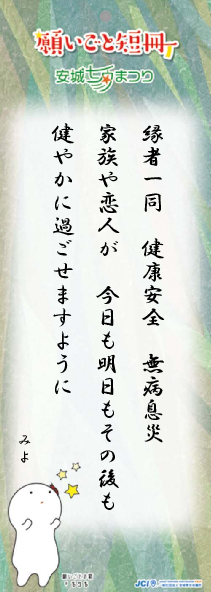 願いごと短冊
安城七夕まつり
縁者一同　健康安全　無病息災
家族や恋人が　今日も明日もその後も
健やかに過ごせますように
みよ
JCI